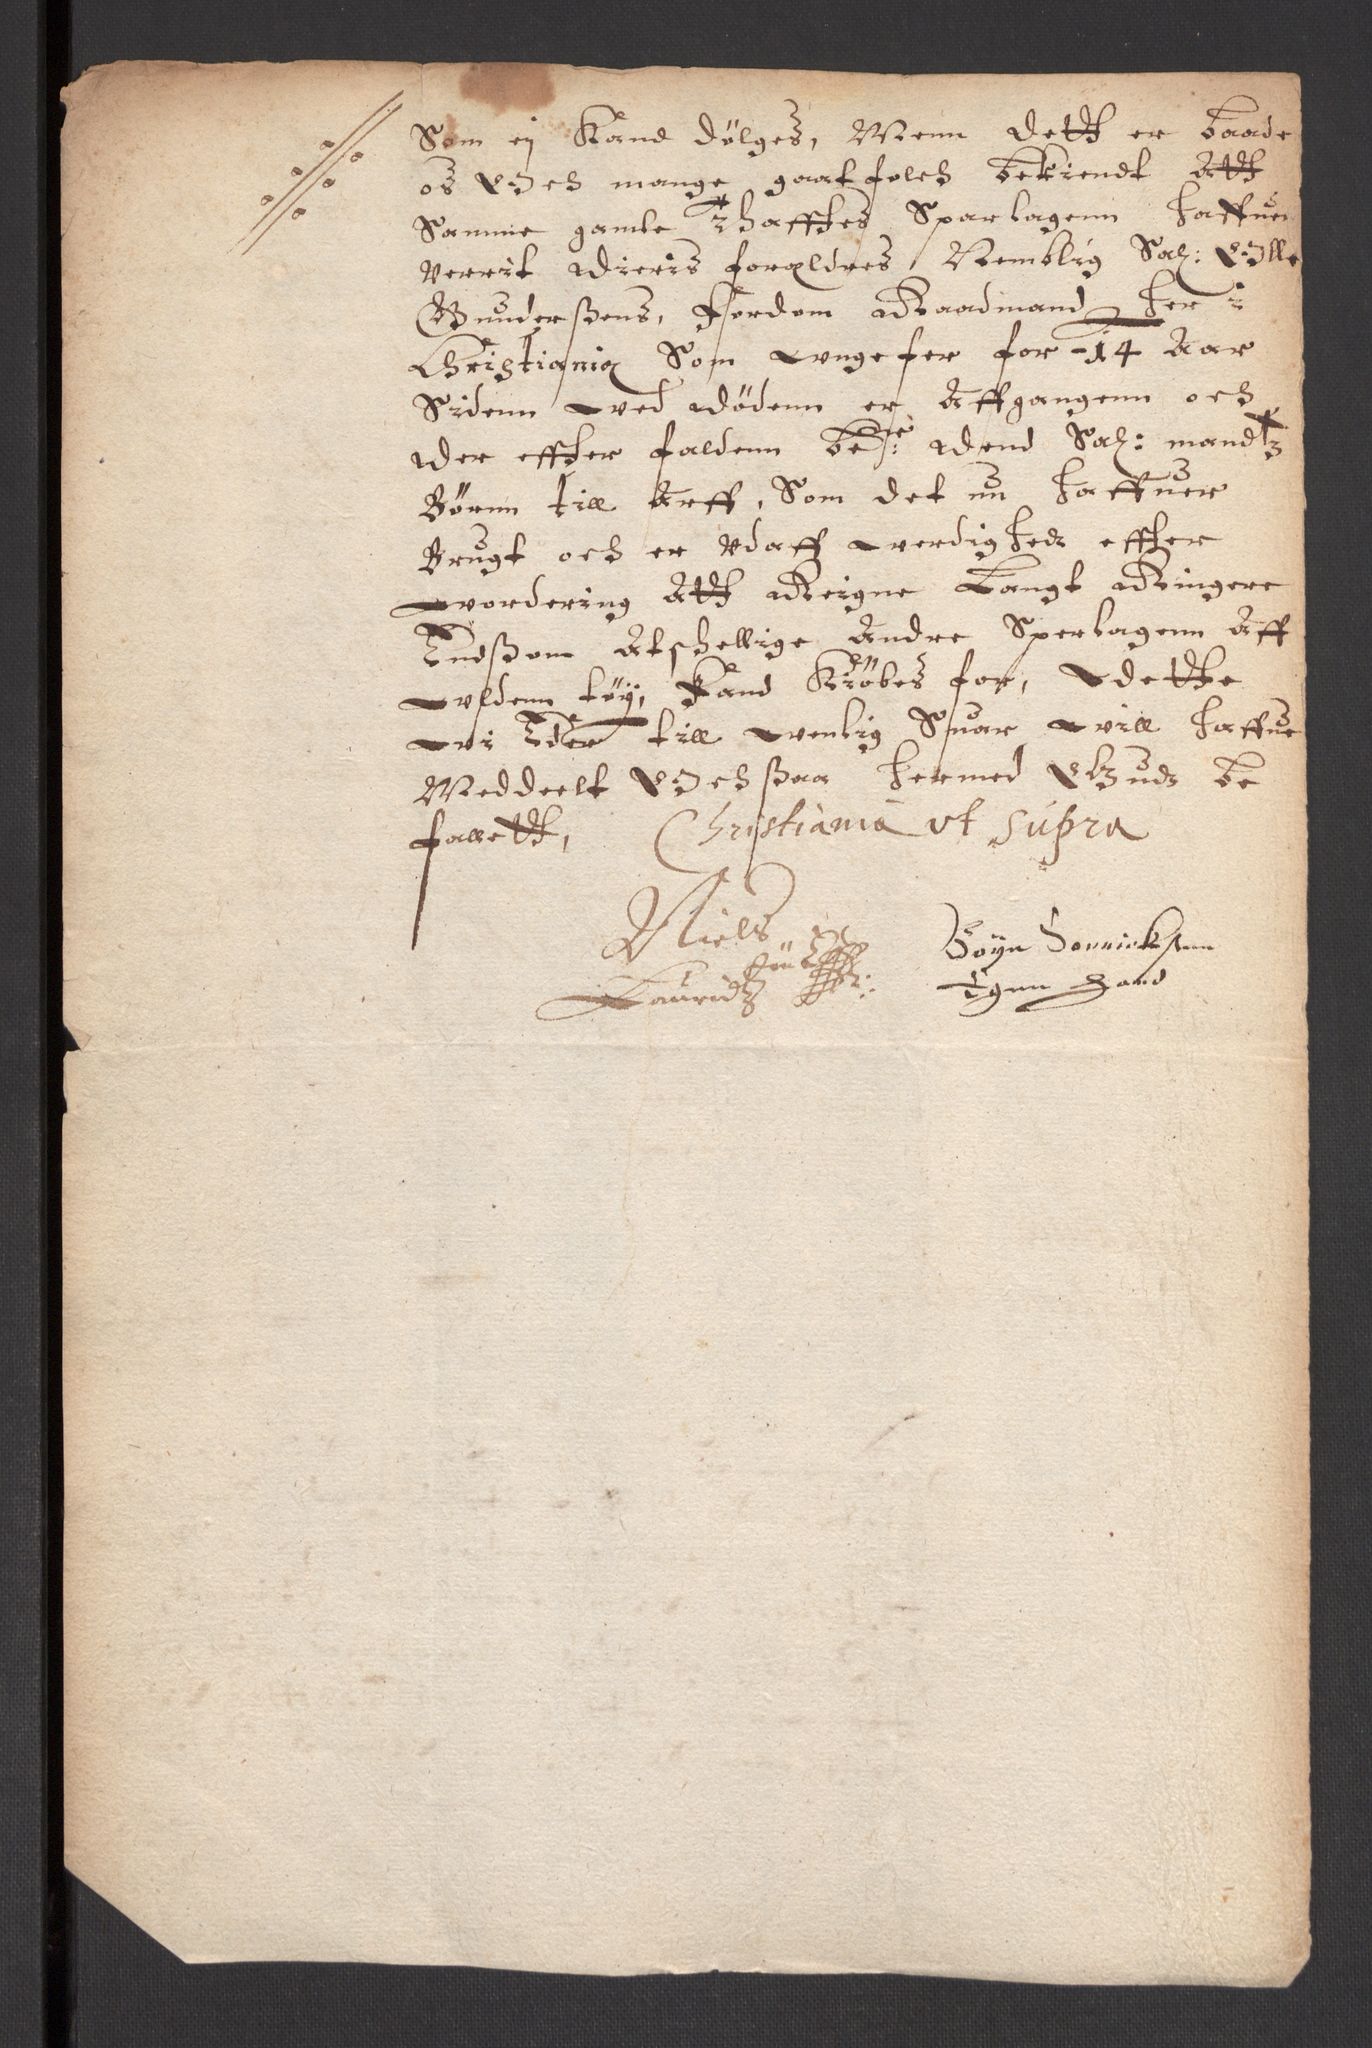 Som ej Kand dölges, Menn dett er baade
os Och mange gaat folch bekiendt Att
Samme gamle Thafftes Sparlagenn haffuer
Verrit dieris forældres, Nemblig Sal: Olle
Gunderßens, fordom Raadmand her i
Christiania Som Vngefer for 14 Aar
Sidenn ved Dödenn er Affgangenn och
der effter faldenn be:te dend Sal: mandtz
Börnn till Arff, Som det nu haffuer
Brugt och er Vdaff verdighed effter
vordering Att Reigne Langt Ringere
Endßom Atschellige Andre Sperlagenn Aff
vldenn töy, Kand Kiöbes for, dette
vi Eder till venlig Suar vill haffue
Meddeelt Ochßaa hermed Gud be
fallett, Christiania vt supra
Niels
Lauridtz
Egenn Hand